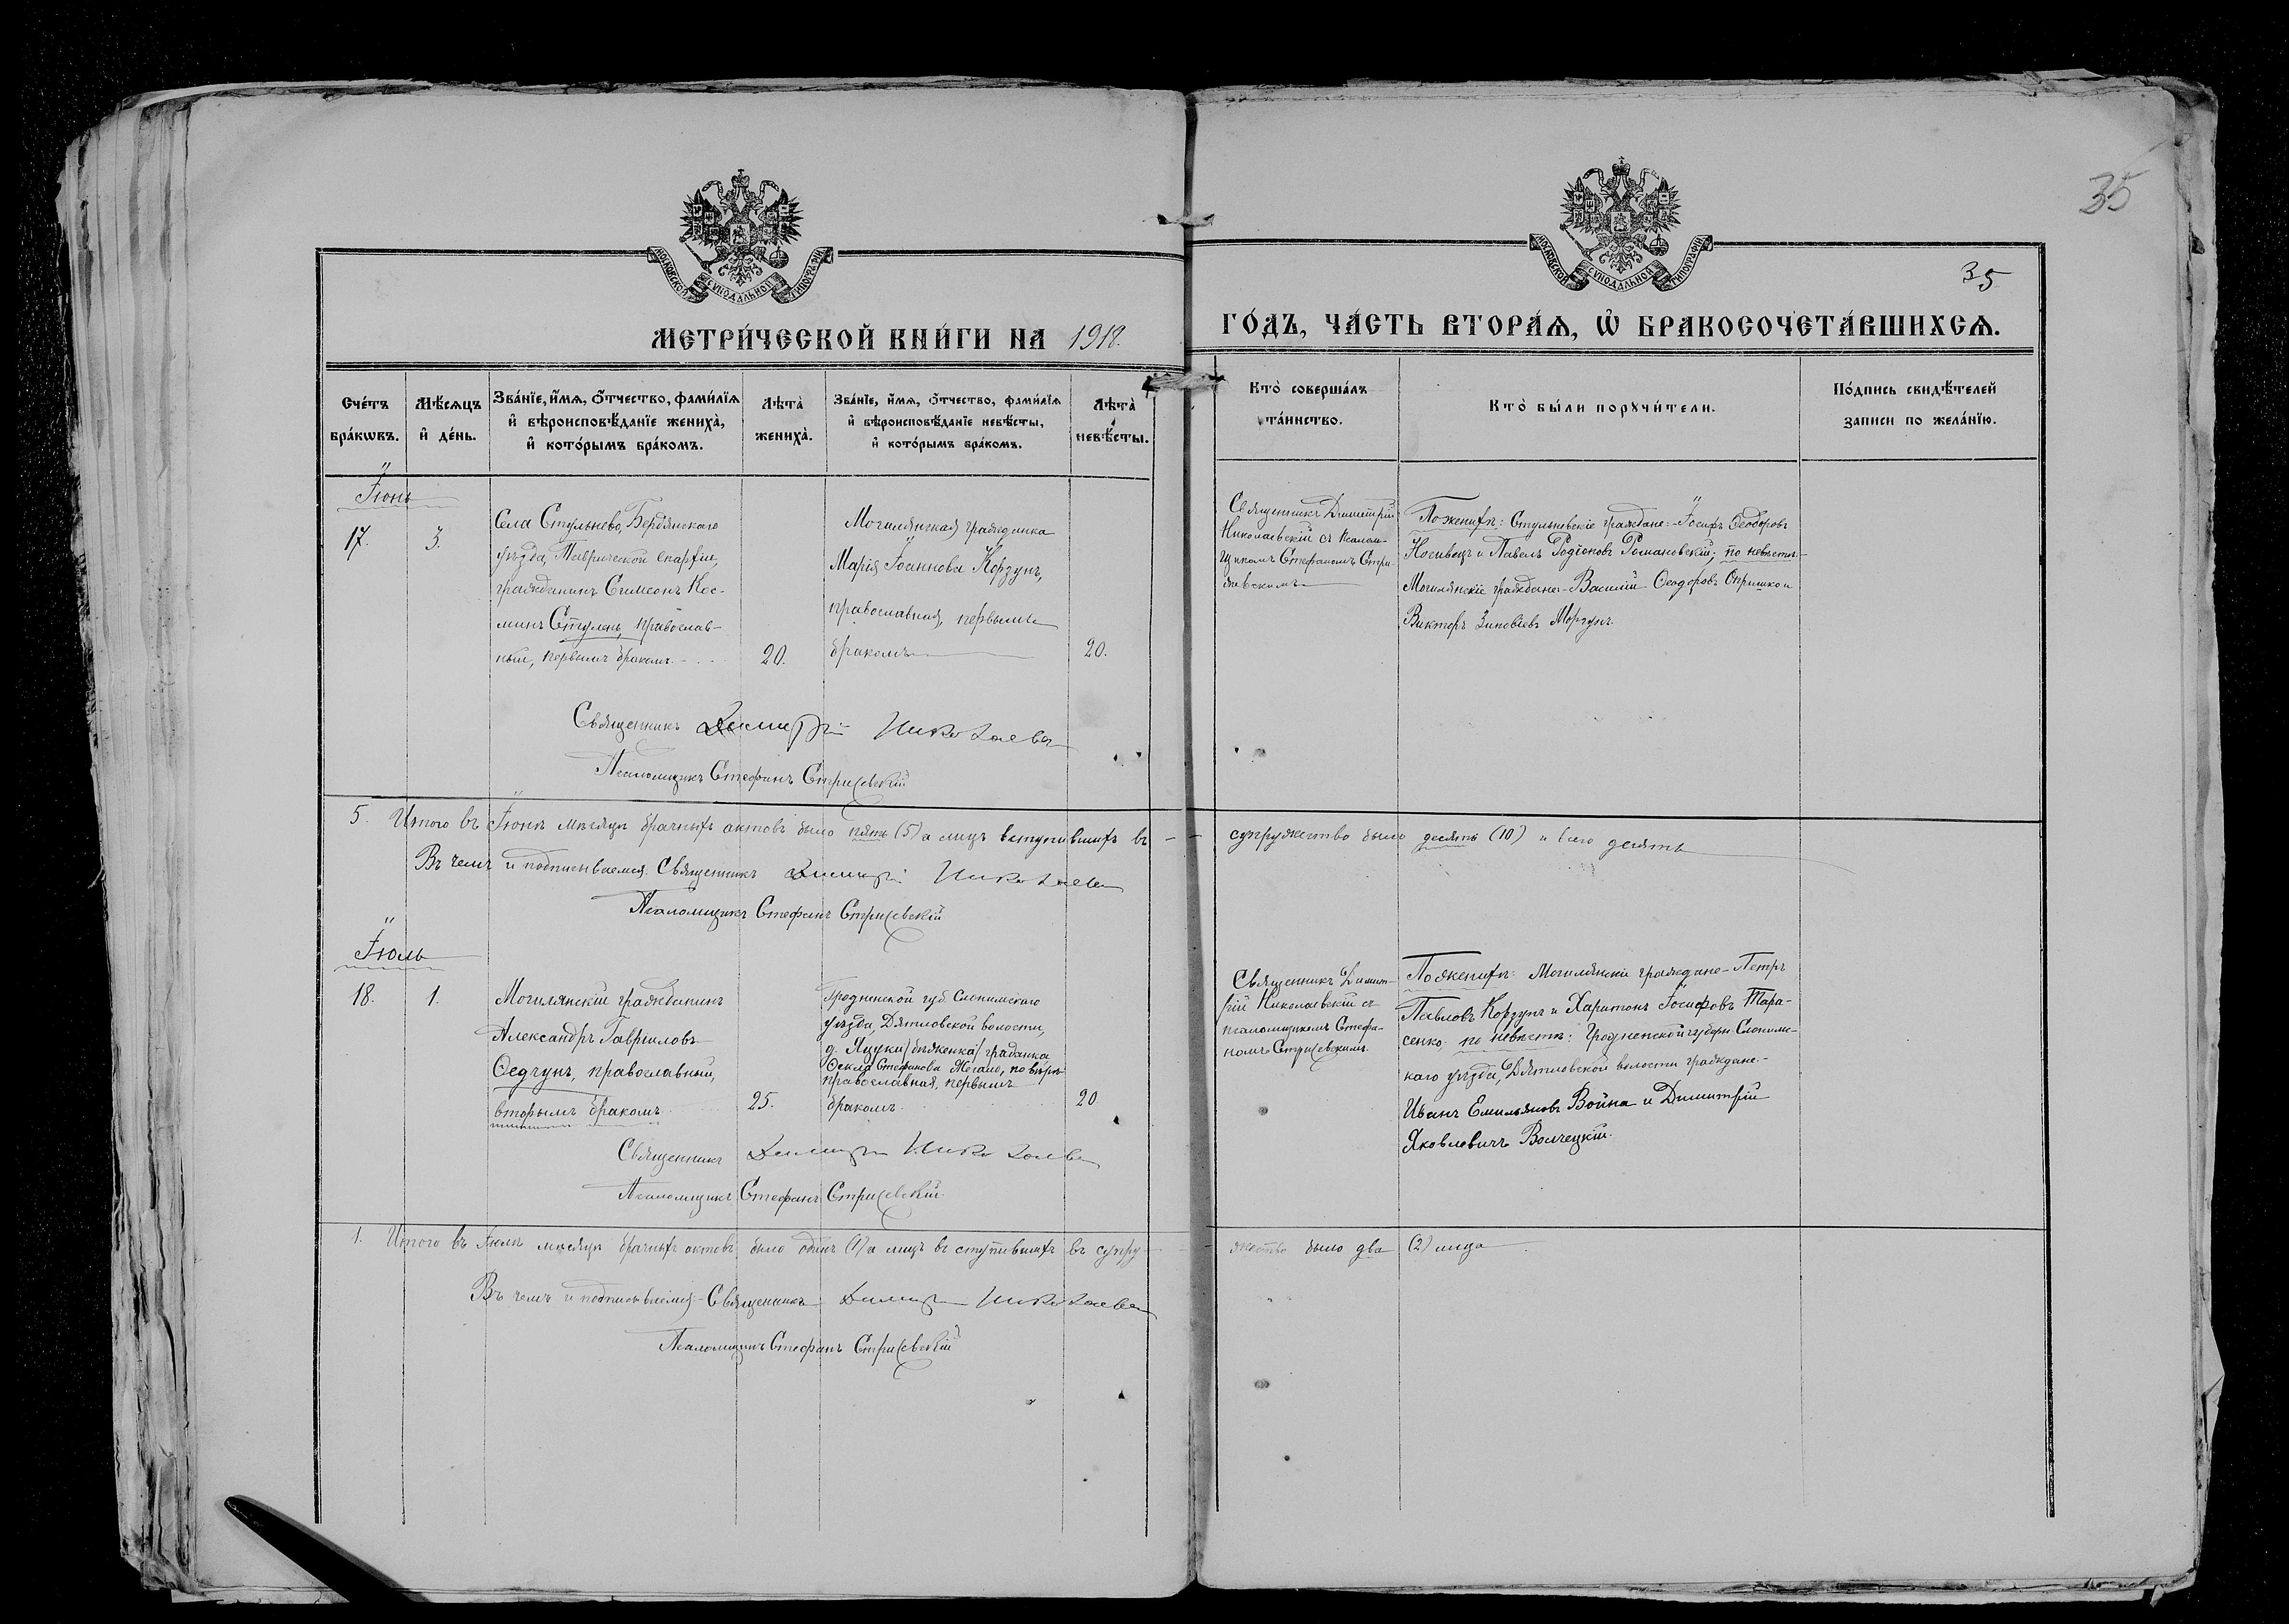 35
35
МОСКОВСКОЙ СУНОДАЛЬНОЙ ТИПОГРАФІИ
МОСКОВСКОЙ СУНОДАЛЬНОЙ ТИПОГРАФІИ
МЕТРИ́ЧЕСКОЙ КНИ́ГИ НА 1918.
ГО́ДЪ, ЧА́СТЬ ВТОРА́Ѧ, Ѽ БРАКОСОЧЕТА́ВШИХСѦ.
Сче́тъ
бра́кѡвъ.
Мѣ́сѧцъ
и҆ де́нь.
Зва́нїе, и҆́мѧ, ѻ҆́тчество, фами́лїѧ
и҆ вѣроисповѣ́данїе жениха̀,
и҆ кото́рымъ бра́комъ.
Лѣ́та̀
жениха̀.
Зва́нїе, и҆́мѧ, ѻ҆́тчество, фами́лїѧ
и҆ вѣроисповѣ́данїе невѣ́сты,
и҆ кото́рымъ бра́комъ.
Лѣ́та̀
невѣ́сты.
Кто̀ соверша́лъ
та́инство.
Кто̀ бы́ли порꙋчи́тели.
По́дпись свидѣ́телей
записи по жела́нїю.
Іюнь
17.
3.
Села Стульнево, Бердянскаго
уѣзда, Таврической епархіи,
гражданинъ Симеонъ Кос-
минъ Стулень, православ-
ный, первымъ бракомъ
20.
Могилянская гражданка
Марія Іоаннова Корзунъ,
православная, первымъ
бракомъ
20.
Священникъ Димитрій
Николаевскій съ псалом-
щикомъ Стефаномъ Стри-
жевскимъ
По женихѣ: Стульневскіе граждане: Іосифъ Ѳеодоровъ
Носивецъ и Павелъ Родіоновъ Романовскій; по невѣстѣ:
Могилянскіе граждане - Василій Ѳеодоровъ Опришко и
Викторъ Зиновіевъ Моргунъ.
Священникъ Димитрій Николаевск
Псаломщикъ Стефанъ Стрижевскій
5. Итого въ Іюнѣ мѣсяцѣ брачныхъ актовъ было пять (5) а лицъ вступившихъ въ
супружество было десять (10) и всего десять
Въ чемъ и подписываемся. Священникъ Димитрій Николаевск
Псаломщикъ Стефанъ Стрижевскій
Іюль
18.
1.
Могилянскій гражданинъ
Александръ Гавріиловъ
Ѳедчунъ, православный,
вторымъ бракомъ
25.
Гродненской губ. Слонимскаго
уѣзда, Дятловской волости,
д. Яцуки /бѣженка/ гражданка
Ѳекла Стефанова, по вѣрѣ
православная, первымъ
бракомъ
20
Священникъ Димит-
рій Николаевскій съ
псаломщикомъ Стефа-
номъ Стрижевскимъ.
По женихѣ: Могилянскіе граждане - Петръ
Павловъ Корзунъ и Харитонъ Іосифовъ Тара-
сенко. по невѣстѣ: Гродненской губерн. Слонимс-
каго уѣзда, Дятловской волости граждане:
Иванъ Емильяновъ Война и Димитрій
Яковлевичъ Волчецкій.
Священникъ Димитрій Николаевск
Псаломщикъ Стефанъ Стрижевскій.
1. Итого въ Іюлѣ мѣсяцѣ брачныхъ актовъ было одинъ (1) а лицъ вступившихъ въ супру-
жество было два (2) лица
Въ чемъ и подписываемся - Священникъ Димитрій Николаевск
Псаломщикъ Стефанъ Стрижевскій